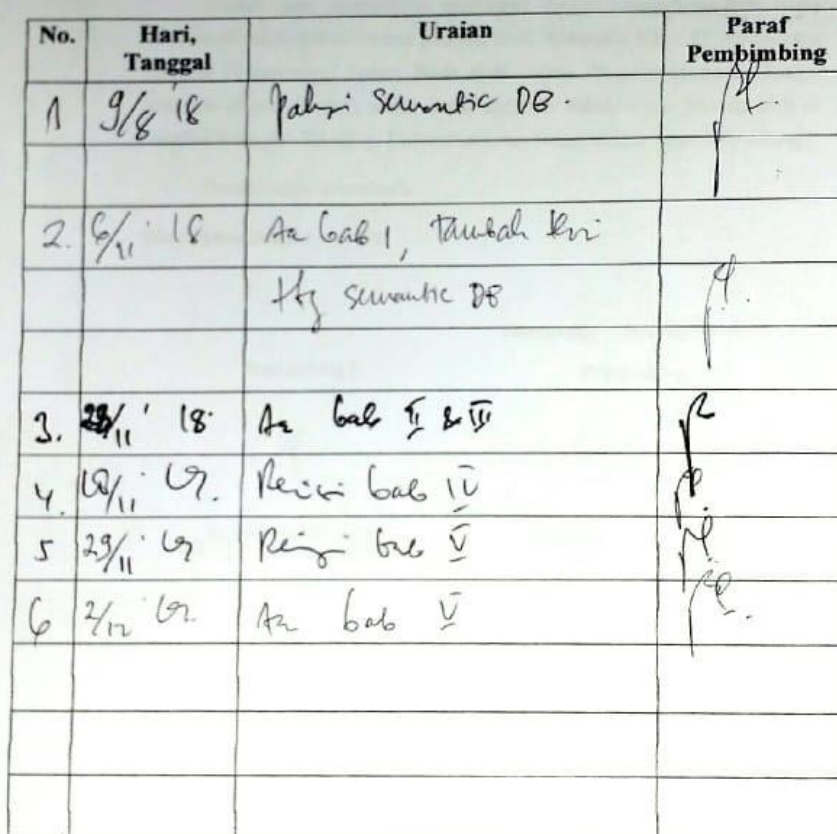 No. Hari, Tanggal Uraian Paraf Pembimbing
1 9/8 '18 semantic DB.
2. 6/11 '18 Acc bab 1, tambah
semantic DB
3. 28/11 '18 Acc bab II & III
4. /11 '19. Revisi bab IV
5 29/11 '19 Revisi bab V
6 2/12 '19. Acc bab V